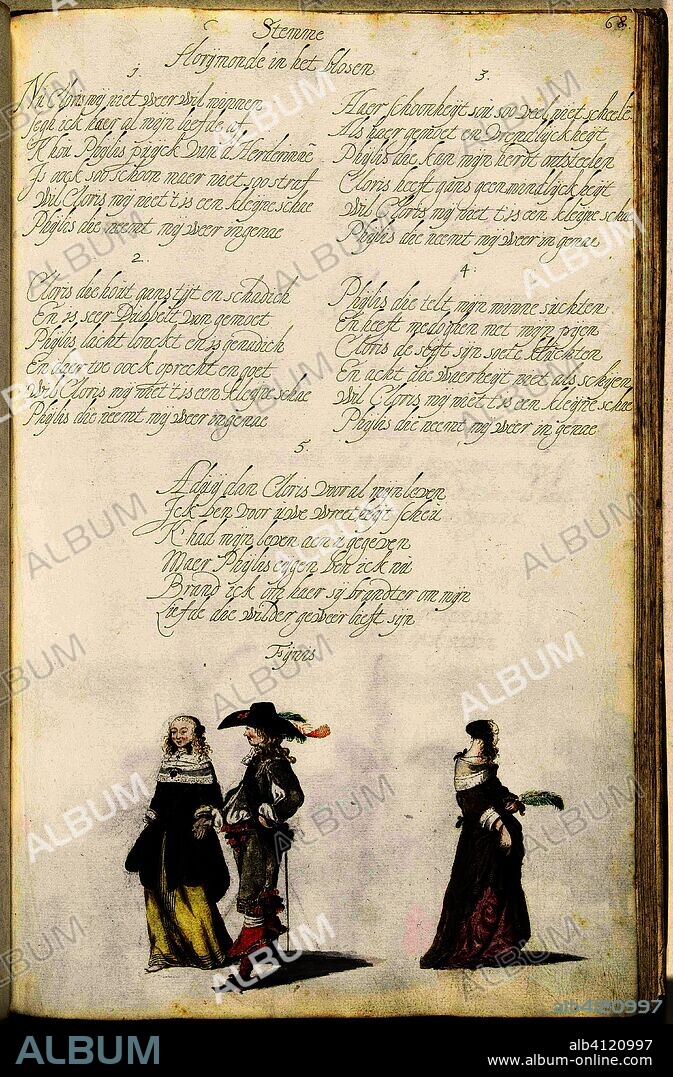 68.
Stemme
Florijmonde in het blosen
1.
Nu Cloris mij niet weer wil minnen
Segh ick haer al mijn liefde of
K hou Phylis puyck van d Herderinne
Is oock soo schoon maer niet soo straf
Wil Cloris mij niet t is een kleyne schae
Phylis die neemt mij weer in genae
2.
Cloris die hout gans tijt en schadich
En is seer dubbelt van gemoet
Phylis lacht lonckt en is genadich
En daer toe oock oprecht en goet
Wil Cloris mij niet t is een kleyne schae
Phylis die neemt mij weer in genae
3.
Haer schoonheyt sou soo veel niet scheele
Als haer gemoet en vrendlyckheyt
Phylis die kan mijn hert ontsteelen
Cloris heeft gans geen mindlyckheyt
Wil Cloris mij niet t is een kleyne schae
Phylis die neemt mij weer in genae
4.
Phylis die telt mijn minne suchten
En heeft medoghen met mijn pijen
Cloris de seyt sijn soete kluchten
En acht die waerheyt niet als schijen
Wil Cloris mij niet t is een kleyne schae
Phylis die neemt mij weer in genae
5.
Adiuij dan Cloris voor al mijn leven
Ick ben voor uwe wreetheyt scheu
K had mijn leven aen u gegeven
Maer Phylis eygen ben ick nu
Brand ick om haer sij brandter om mijn
Liefde die wilder geweer lieft sijn
Fsijnis
ALBUM
alb4120997
ALBUM
alb4120997
www.album-online.com